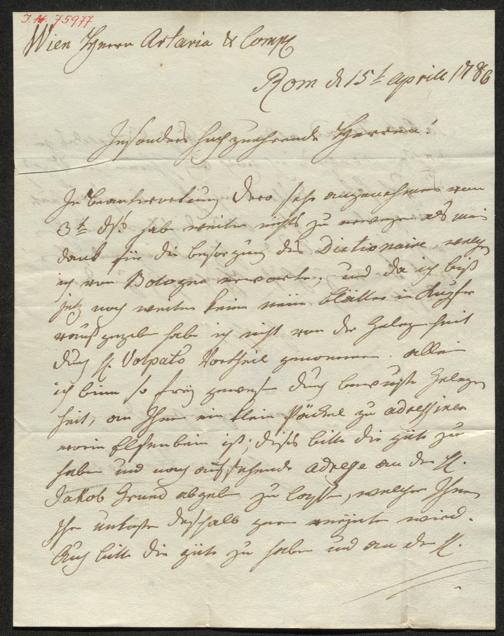 I.N. 75977
Wien Herrn Artaria & Comp
Rom d 15t Aprill 1786
Insonders hochzuehrende Herren!
In Beantwortung Dero sehr angenehmes vom
3t dß hab weiter nichts zu als mein
dank für die besorgung des Dictionaire, welch
ich von Bologna erwarte, und da ich biß
jetz noch weiter kein neue blätter in
habe ich nicht von der gelegenheit
durch H. Volpato Vortheil genommen. allein
ich binn so frey gewest durch gelegen
heit, an Ihnen ein klein Päckel zu adressiren
worin Elfenbein ist. dises bitte die güte zu
haben und nach adreße an den H.
Jakob Grund abgeben zu lassen, welcher Ihnen
Ihr deßhalb gern wird.
Auch bitte die güte zu haben und an den H.